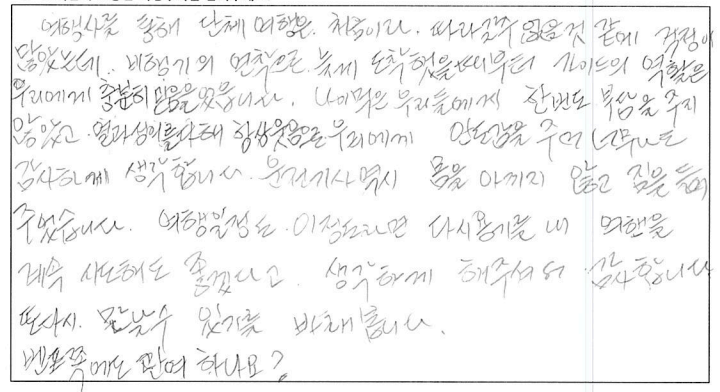 여행사를 통해 단체 여행은 처음이라. 따라갈수 없을것 같에 걱정이
많았는데. 비행기의 연착으로 늦게 도착했을때부터 가이드의 역할은
우리에게 충분히 믿음을 있습니다. 나이먹은 우리들에게 한번도 부담을 주지
않았고 열과성의를다해 항상웃음으로우리에게 안도감을 주어 너무나도
감사하게 생각합니다. 운전기사역시 몸을 아끼지 않고 짐을 들어
주었습니다. 여행일정도. 이정도라면 다시용기를 내 여행을
계속 시도해도 좋겠다고. 생각하게 해주셔서 감사합니다
또다시. 만날수 있기를 바래봅니다.
쪽에도 관여 하나요?